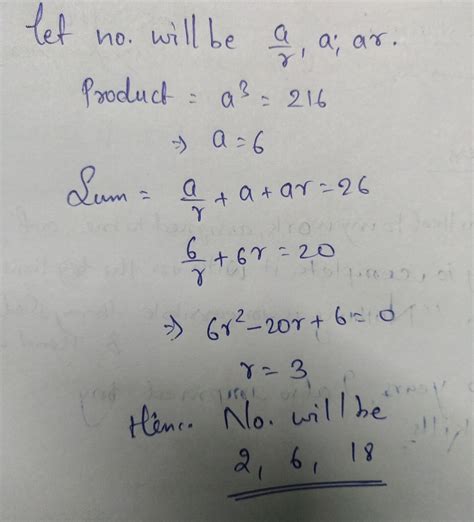 let no. will be a/r, a, ar.
Product = a³ = 216
⇒ a = 6
Sum = a/r + a + ar = 26
6/r + 6r = 20
⇒ 6r² - 20r + 6 = 0
r = 3
Henc. No. will be
2, 6, 18